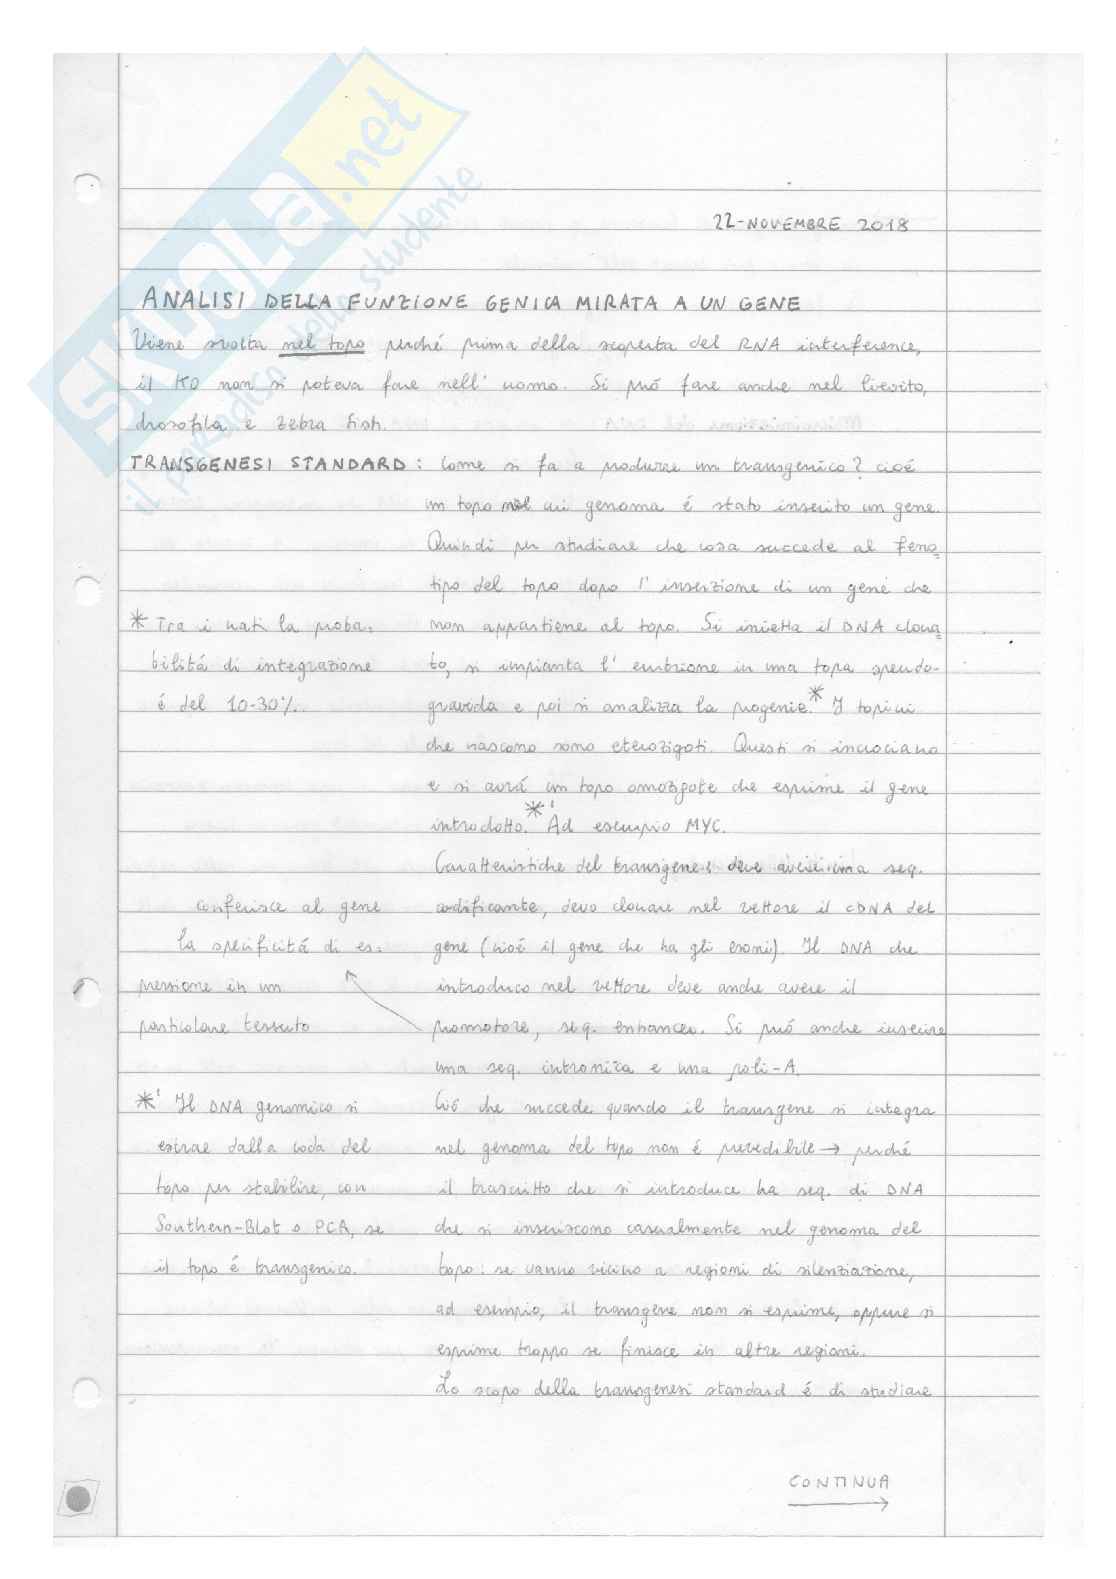 SKUOLA.net
il paradiso dello studente
22-NOVEMBRE 2018
ANALISI DELLA FUNZIONE GENICA MIRATA A UN GENE
Viene svolta nel topo perché prima della scoperta del RNA interference,
il KO non si poteva fare nell'uomo. Si può fare anche nel lievito,
drosofila e zebra fish.
TRANSGENESI STANDARD: Come si fa a produrre un transgenico? cioé
un topo nel cui genoma é stato inserito un gene.
Quindi per studiare che cosa succede al feno
tipo del topo dopo l'inserzione di un gene che
non appartiene al topo. Si inietta il DNA clona
to, si impianta l'embrione in una topa speudo-
gravida e poi si analizza la progenie.* I topini
che nascono sono eterozigoti. Questi si incrociano
e si avrá un topo omozigote che esprime il gene
introdotto.*' Ad esempio MYC.
Caratteristiche del transgene: deve avere una seq.
codificante, devo clonare nel vettore il cDNA del
gene (cioé il gene che ha gli esoni). Il DNA che
introduco nel vettore deve anche avere il
promotore, seq. enhancer. Si può anche inserire
una seq. intronica e una poli-A.
Ció che succede quando il transgene si integra
nel genoma del topo non é prevedibile → perché
il trascritto che si introduce ha seq. di DNA
che si inseriscono casualmente nel genoma del
topo: se vanno vicino a regioni di silenziazione,
ad esempio, il transgene non si esprime, oppure si
esprime troppo se finisce in altre regioni.
Lo scopo della transgenesi standard é di studiare
* Tra i nati la proba-
bilitá di integrazione
é del 10-30%.
conferisce al gene
la specificitá di es-
pressione in un
particolare tessuto
*' Il DNA genomico si
estrae dalla coda del
topo per stabilire, con
Southern-Blot o PCR, se
il topo é transgenico.
CONTINUA
→